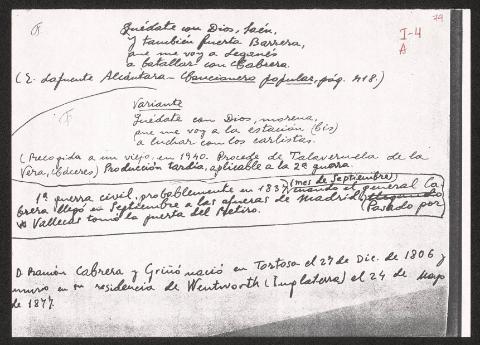 Quédate con Dios, Jaén,
y también puerta Barrera,
que me voy a Leganés
a batallar con Cabrera.
(E. Lafuente Alcántara - Cancionero popular, pág. 418.)
I-4
A
79
Variante
Quédate con Dios, morena,
que me voy a la estación (bis)
a luchar con los carlistas.
(Recogida a un viejo, en 1940. Procede de Talaveruela de la
Vera, (Cáceres) Producción tardía, aplicable a la 2ª guerra.
1ª guerra civil, probablemente en 1837 (mes de Septiembre) cuando el general Ca-
brera llegó en Septiembre a las afueras de Madrid. (Pasado por
Vallecas tomó la puerta del Retiro.
D. Ramón Cabrera y Griñó nació en Tortosa el 27 de Dic. de 1806 y
murió en su residencia de Wentworth (Inglaterra) el 24 de Mayo
de 1877.